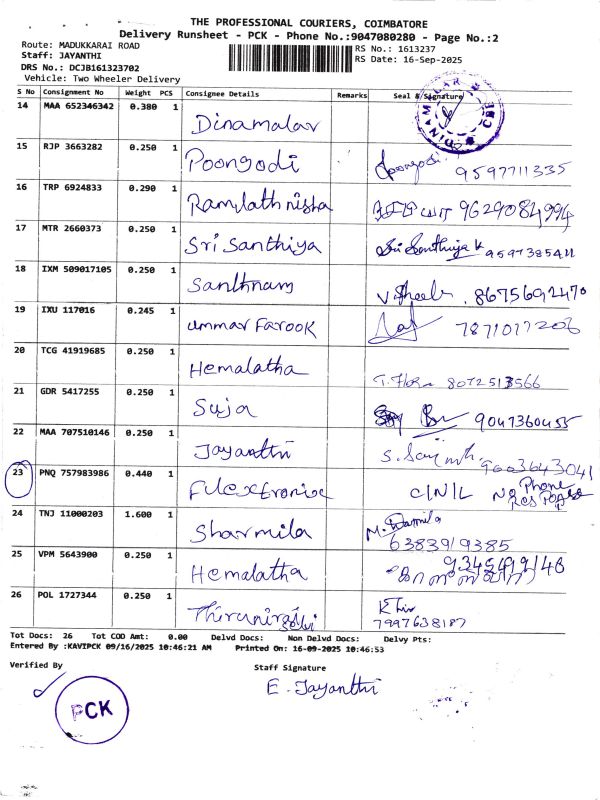 THE PROFESSIONAL COURIERS, COIMBATORE
Delivery Runsheet - PCK - Phone No.:9047080280 - Page No.:2
Route: MADUKKARAI ROAD
RS No.: 1613237
Staff: JAYANTHI
RS Date: 16-Sep-2025
DRS No.: DCJB161323702
Vehicle: Two Wheeler Delivery
S No Consignment No Weight PCS Consignee Details Remarks Seal & Signature
14 MAA 652346342 0.380 1 Dinamalar
15 RJP 3663282 0.250 1 Poongodi Poongodi 9597711335
16 TRP 6924833 0.290 1 Ramlathnisha 9629084994
17 MTR 2660373 0.250 1 Sri Santhiya Sri Santhiya K 9597385411
18 IXM 509017105 0.250 1 Santhnam 8675692470
19 IXU 117016 0.245 1 ummar Farook 7871017206
20 TCG 41919685 0.250 1 Hemalatha 8072513566
21 GDR 5417255 0.250 1 Suja 9047360455
22 MAA 707510146 0.250 1 Jayanthi 9603643041
23 PNQ 757983986 0.440 1 Fulextronice C/N/L No Phone
24 TNJ 11000203 1.600 1 Sharmila 6383919385
25 VPM 5643900 0.250 1 Hemalatha
26 POL 1727344 0.250 1 7997638187
Tot Docs: 26 Tot COD Amt: 0.00 Delvd Docs: Non Delvd Docs: Delvy Pts:
Entered By :KAVIPCK 09/16/2025 10:46:21 AM Printed On: 16-09-2025 10:46:53
Verified By
Staff Signature
E. Jayanthi
PCK